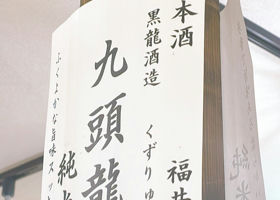 本酒
福井
黒龍酒造
くずりゅ
九頭龍
純米
ふくよかな旨味スッ
純米